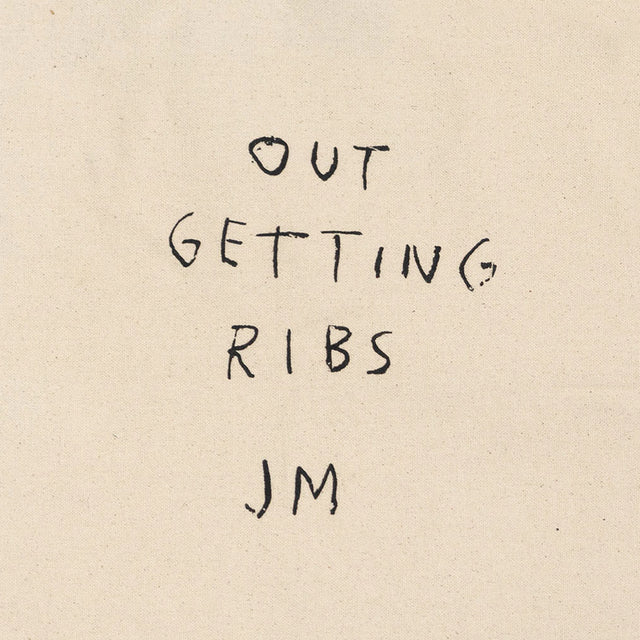 OUT
GETTING
RIBS
JM